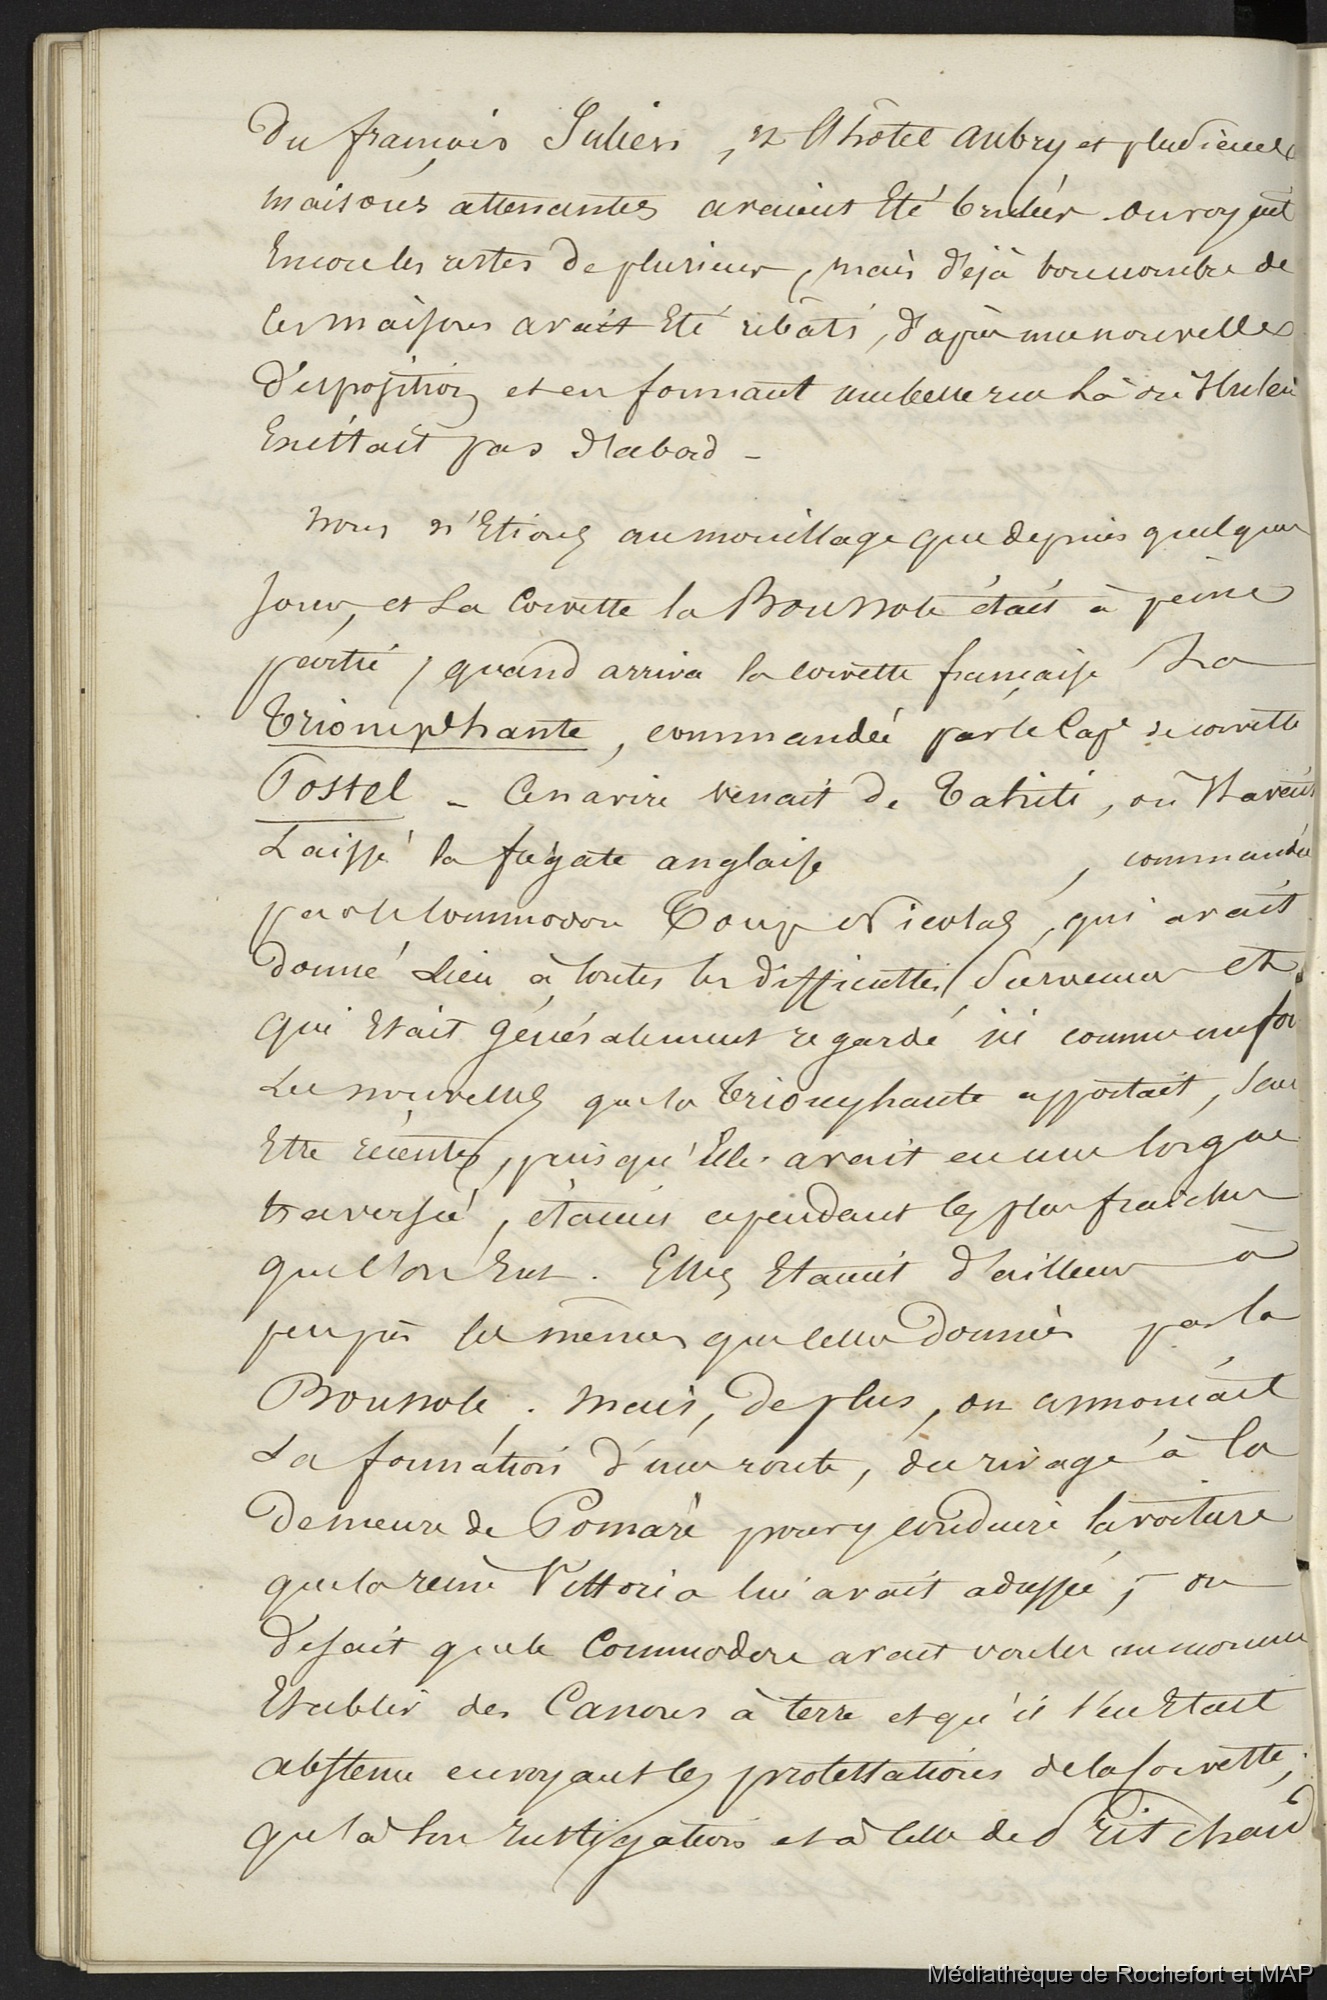 Du français Julien, et l'hotel Aubry et plusieurs
maisons attenantes avaient Eté brulées. on voyait
Encore les restes de plusieurs, mais déjà bon nombre de
ces maisons avait Eté rebâti, d'après une nouvelle
disposition et en formant une belle rue là où il n'en
Enéttait pas d'abord -
Nous n'Etions au mouillage que depuis quelques
jours, et La Corvette la Boussole était à peine
partie, quand arriva la corvette française La
Triomphante, commandée par le Cap.e de corvette
Postel - Ce navire venait de Tahiti, où Il avait
Laissé la frégate anglaise , commandée
par le Commodore Toup Nicolas, qui avait
donné Lieu à toutes les difficultés survenues et
qui Etait généralement regardé ici comme un fou
Les nouvelles que la Triomphante apportait, sans
Etre récentes, puisqu'Elle avait eu une longue
traversée, étaient cependant les plus fraiches
que l'on Eut. Elles Etaient d'ailleurs à
peu près les mêmes que celles données par la
Boussole. Mais, de plus, on annonçait
La formation d'une route, du rivage à la
demeure de Pomaré pour y conduire la voiture
que la reine Vittoria lui avait adressée; on
disait que le Commodore avait voulu un moment
Etablir des Canons à terre et qu'il s'en Etait
abstenu en voyant les protestations de la corvette;
qu'à son instigation et à celle de Pritchard
Médiathèque de Rochefort et MAP